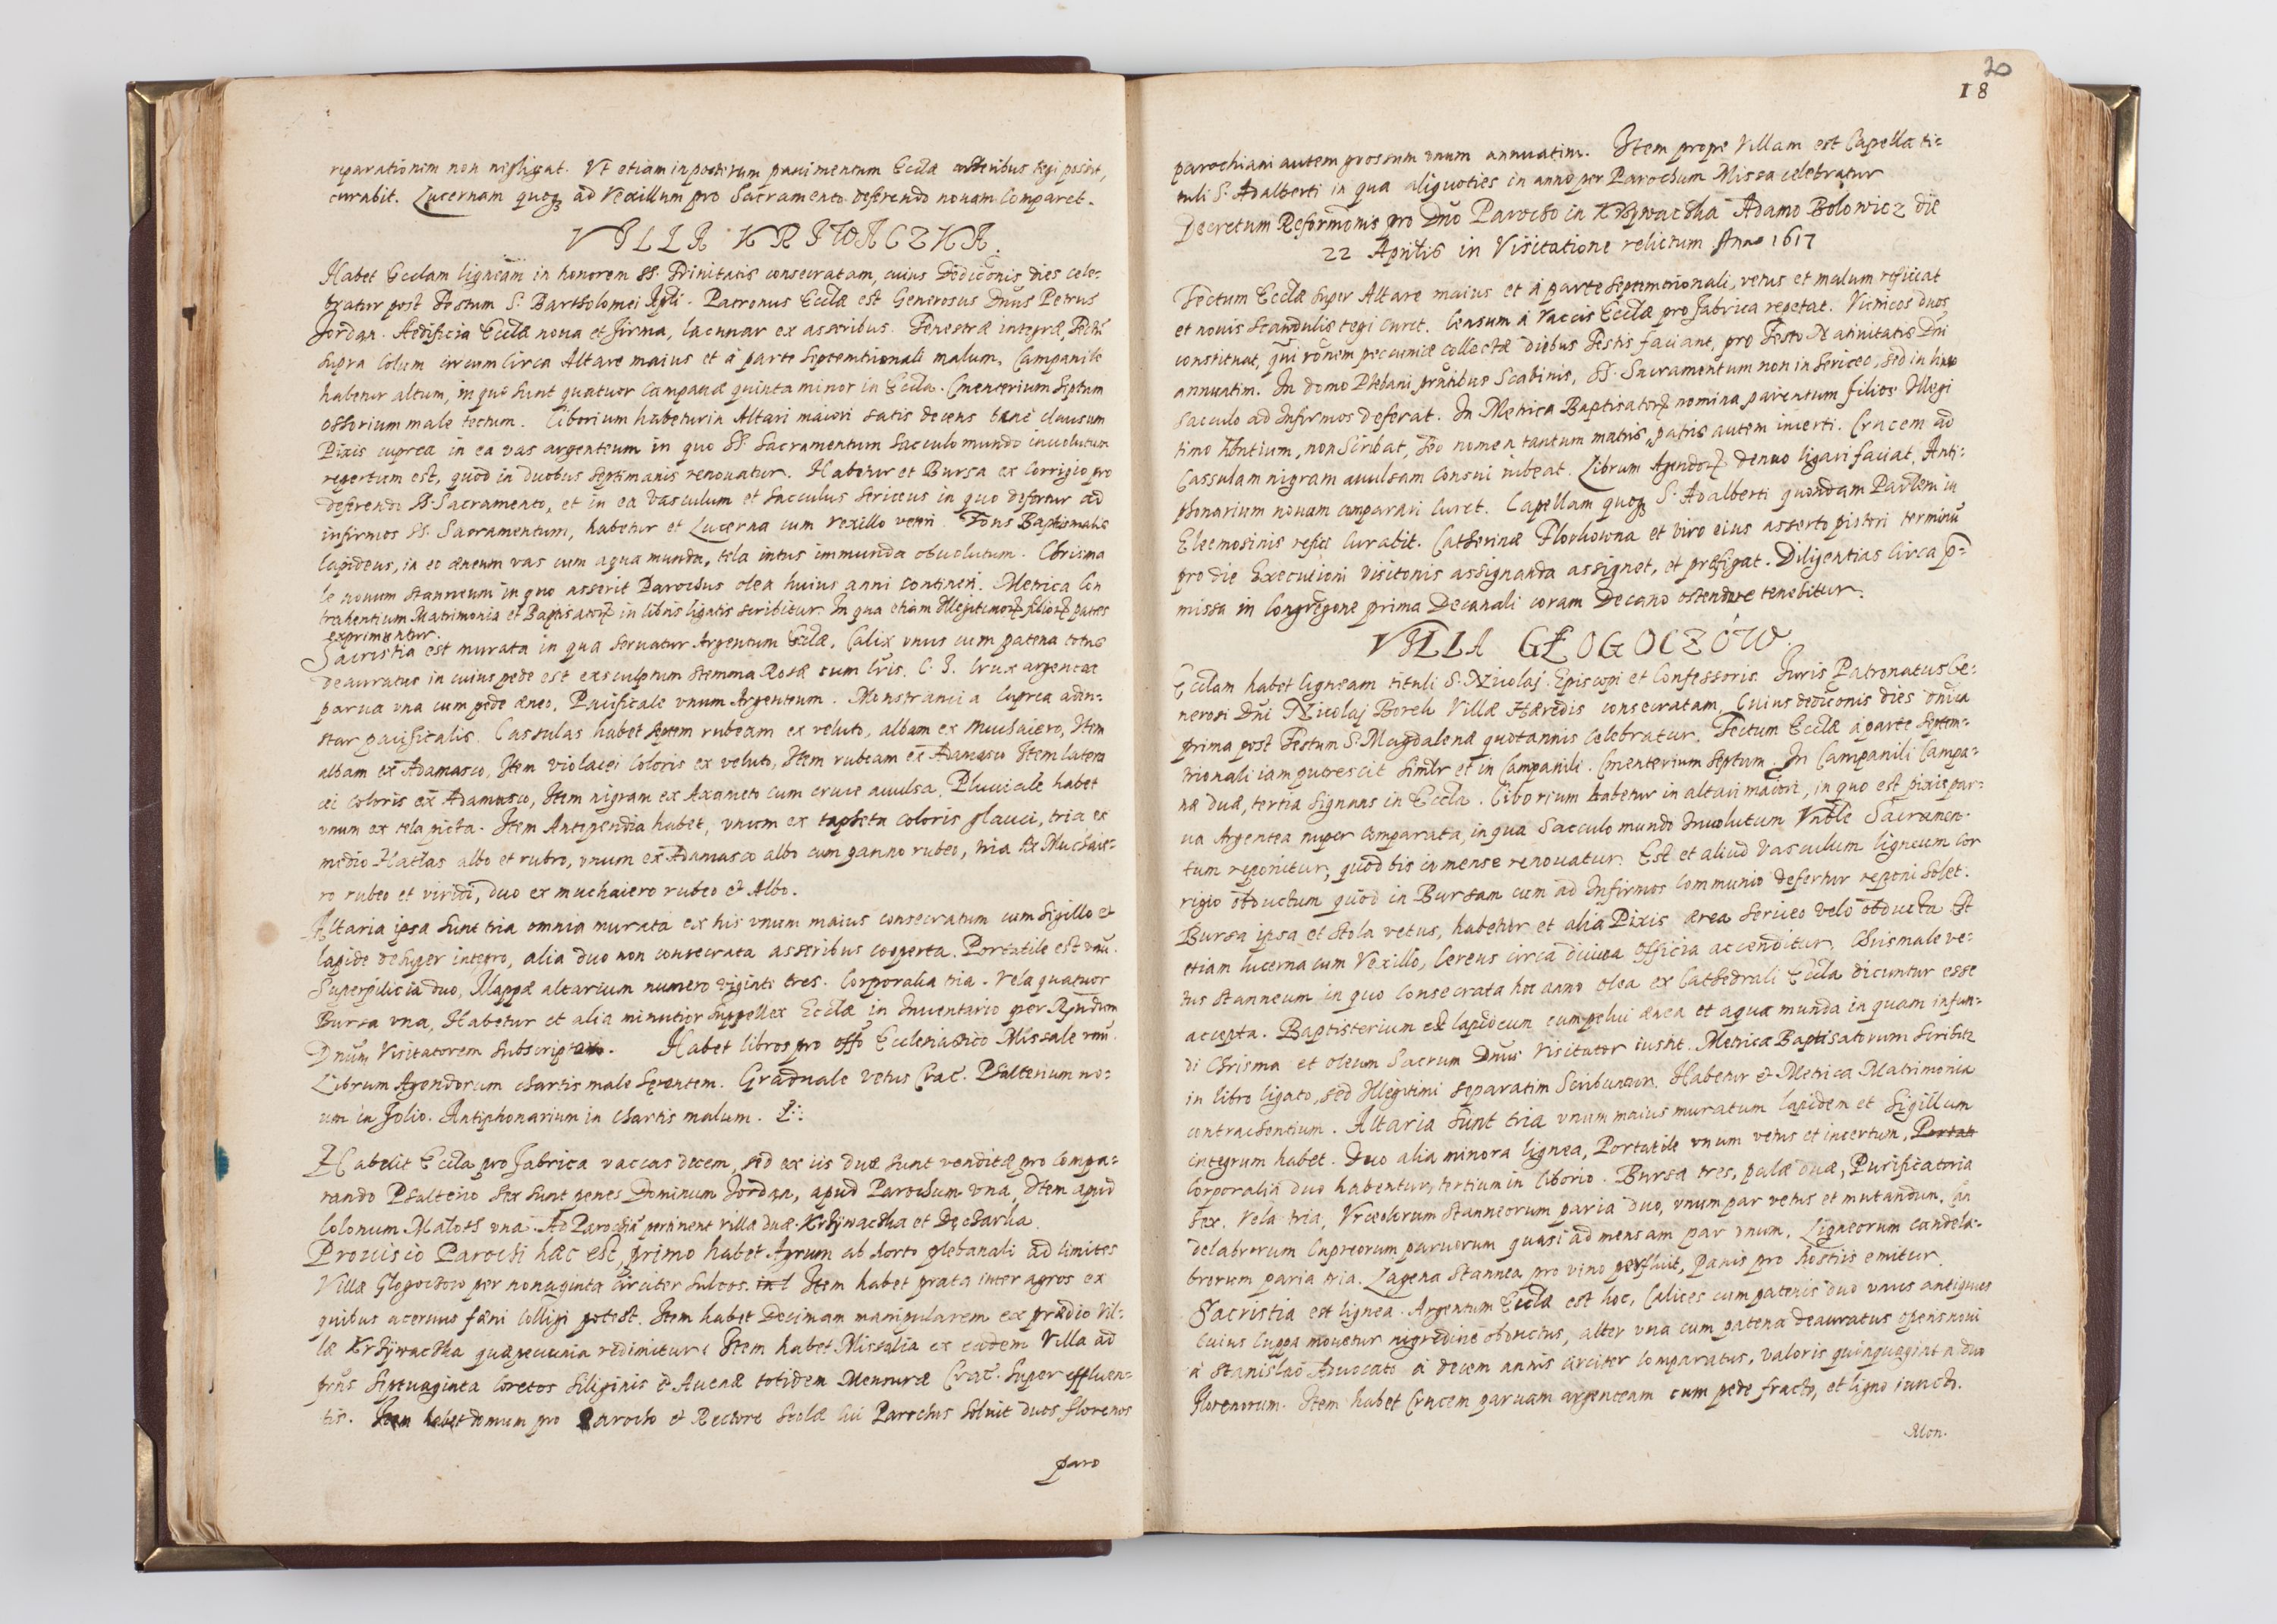 reparationem non negligat. Vt etiam inposterum pauimentum Eccłæ lateribus tegi possit,
curabit. Lucernam quoqȝ ad Vexillum pro Sacramento deferendo nouam Comparet.
VILLA KRIWACZKA.
Habet Ecclam ligneam in honorem SS. Trinitatis consecratam, cuius Dedicõnis dies cele-
bratur post Festum S. Bartholomei Apli. Patronus Ecclæ est Generosus Dnus Petrus
Jordan. Aedificia Ecclæ noua et firma, lacunar ex asseribus. Fenestræ integræ, Tectũ
supra Colum circumcirca Altare maius et à parte Septemtrionali malum. Campanile
habetur altum, in quo sunt quatuor Campanæ quinta minor in Eccla. Cmenterium Septum
ossorium male tectum. Ciborium habetur in Altari maiori satis decens bene clausum
Pixis cuprea in ea vas argenteum in quo SS. Sacramentum Sacculo mundo inuolutum
repertum est, quod in duobus Septimanis renouatur. Habetur et Bursa ex Corrigio pro
deferendo SS. Sacramento, et in ea Vasculum et Sacculus Sericeus in quo defertur ad
infirmos SS. Sacramentum, habetur et Lucerna cum vexillo veteri. Fons Baptismalis
lapideus, in eo æneum vas cum aqua munda, tela intus immunda obuolutum. Chrisma
le nouum stanneum in quo asserit Parochus olea huius anni contineri. Metrica Con
trahentium Matrimonia et Baptisatorꝝ in libris ligatis scribitur. In qua etiam Illegitimorꝝ filiorꝝ patres
exprimuntur.
Sacristia est murata in qua seruatur Argentum Ecclæ, Calix vnus cum patena totus
deauratus in cuius pede est exsculptum stemma Rosæ cum Lris. C. I. Crux argentea
parua vna cum pede æneo, Pacificale vnum Argenteum. Monstrantia Cuprea adin-
star pacificalis. Cassulas habet septem rubeam ex veluto, albam ex Muchaiero, Item
albam ex Adamasco, Item violacei Coloris ex veluto, Item rubeam ex Adamasco Item lateri
cei Coloris ex Adamasco, Item nigram ex Axameto cum cruce auulsa. Pluuiale habet
vnum ex tela picta. Item Antependia habet, vnum ex tapheta coloris glauci, tria ex
medio Hatlas albo et rubro, vnum ex Adamasco albo cum panno rubeo, tria Ex Muchaie-
ro rubeo et viridi, duo ex muchaiero rubeo & Albo.
Altaria ipsa sunt tria omnia murata ex his vnum maius consecratum cum Sigillo et
lapide desuper integro, alia duo non consecrata asseribus cooperta. Portatile est vnũ.
Superpilicia duo, Mappæ altarium numero viginti tres. Corporalia tria. Vela quatuor
Bursa vna, Habetur et alia minutior Suppellex Ecclæ in Inuentario per Rṇdum
Dnum Visitatorem subscripto. Habet libros pro offo Ecclesiastico Missale vnũ.
Librum Agendorum chartis male hærentem. Graduale vetus Crac. Psalterium no-
uum in folio. Antiphonarium in chartis malum.
Habuit Eccla pro fabrica vaccas decem, sed ex iis duæ sunt venditæ pro Compa-
rando Psalterio Sex sunt penes Dominum Jordan, apud Parochum vna, Item apud
Colonum Maloss vna. Ad Parochiã pertinent villa duæ Krzÿwaczka et Bęczarka.
Prouisio Parochi hæc est, primo habet Agrum ab horto plebanali ad limites
Villæ Glogoczow per nonaginta circiter sulcos. Item habet prata inter agros ex
quibus aceruus fæni Colligi potest. Item habet Decimam manipularem ex prædio Vil-
læ Krzÿwaczka quæ pecunia redimitur. Item habet Missalia ex eadem Villa ad
præns septuaginta Coretos Siliginis & Auenæ totidem Mensuræ Crac. super effluen-
tis. Item habet domum pro Parocho et Rectore Scolæ Cui Parochus soluit duos florenos
paro
20
18
parochiani autem grossum vnum annuatim. Item prope Villam est Capella ti-
tuli S. Adalberti in qua aliquoties in anno per Parochum Missa celebratur
Decretum Reformõnis pro Dño Parocho in Krzywaczka Adamo Bolowicz die
22 Aprilis in Visitatione relictum Anno 1617
Tectum Ecclæ super Altare maius et à parte Septemtrionali, vetus et malum reficiat
et nouis Scandulis tegi Curet. Censum à vaccis Ecclæ pro fabrica repetat. Vitricos duos
constituat, qui rõnem pecuniæ collectæ diebus Festis faciant, pro Festo Natiuitatis Dñi
annuatim. In domo Plebani prñtibus Scabinis, SS. Sacramentum non in Sericeo, sed in lineo
Sacculo ad Infirmos deferat. In Metrica Baptisatorꝝ nomina parentum filios Illegi
timo hñtium, non scribat, sed nomen tantum matris, patris autem incerti. Crucem ad
Cassulam nigram auulsam Consui iubeat. Librum Agendorꝝ denuo ligari faciat. Anti-
phonarium nouum comparari Curet. Capellam quoqȝ S. Adalberti quondam Paulem in
Eleemosinis refici Curabit. Catherinæ Florkowna et viro eius asserto pistori terminũ
pro die Executioni visitõnis assignanda assignet, et præfigat. Diligentias Circa p-
missa in Congregõne prima Decanali coram Decano ostendere tenebitur.
VILLA GŁOGOCZÓW.
Ecclam habet ligneam tituli S. Nicolaj Episcopi et Confessoris. Juris Patronatus Ge-
nerosi Dñi Nicolaj Borek Villæ Hæredis consecratam, Cuius dedicõnis dies dnica
prima post Festum S. Magdalenæ quotannis Celebratur. Tectum Ecclæ à parte Septem-
trionali iam putrescit Simlr et in Campanili. Cmenterium septum. In Campanili Campa-
næ duæ, tertia signans in Eccla. Ciborium habetur in altari maiori, in quo est pixis par-
ua Argentea nuper comparata, in qua Sacculo mundo Inuolutum Vnble Sacramen-
tum reponitur, quod bis in mense renouatur. Est et aliud Vasculum ligneum Cor
rigio obductum quod in Bursam cum ad Infirmos Communio defertur reponi Solet.
Bursa ipsa et stola vetus, habetur et alia Pixis ærea Sericeo velo obducta Est
etiam lucerna cum Vexillo, Cereus circa diuina Officia accenditur. Chrismale ve-
tus stanneum in quo Consecrata hoc anno olea ex Cathedrali Eccla dicuntur esse
accepta. Baptisterium est lapideum cum pelui ænea et aqua munda in quam infun-
di Chrisma et oleum Sacrum Dnus Visitator iussit. Metrica Baptisatorum scribitr
in libro ligato, sed Illegitimi separatim Scribuntur. Habetur & Metrica Matrimonia
contrahentium. Altaria sunt tria vnum maius muratum lapidem et Sigillum
integrum habet. Duo alia minora lignea, Portatile vnum vetus et incertum, Portati
Corporalia duo habentur, tertium in Ciborio. Bursa tres, palæ duæ, Purificatoria
sex. Vela tria, Vrceolorum stanneorum paria duo, vnum par vetus et mutandum. Can
delabrorum Cupreorum paruorum quasi ad mensam par vnum. Ligneorum candela-
brorum paria tria. Lagena stannea pro vino perfluit, Panis pro hostiis emitur.
Sacristia est lignea. Argentum Ecclæ est hoc, Calices cum patenis duo vnus antiquus
Cuius Cuppa mouetur nigredine obductus, alter vna cum patena deauratus operis noui
à Stanislao Aduocato à decem annis circiter Comparatus, valoris quinquaginta duo
florenorum. Item habet Crucem paruam argenteam cum pede fracto, et ligno iuncto.
Mon-